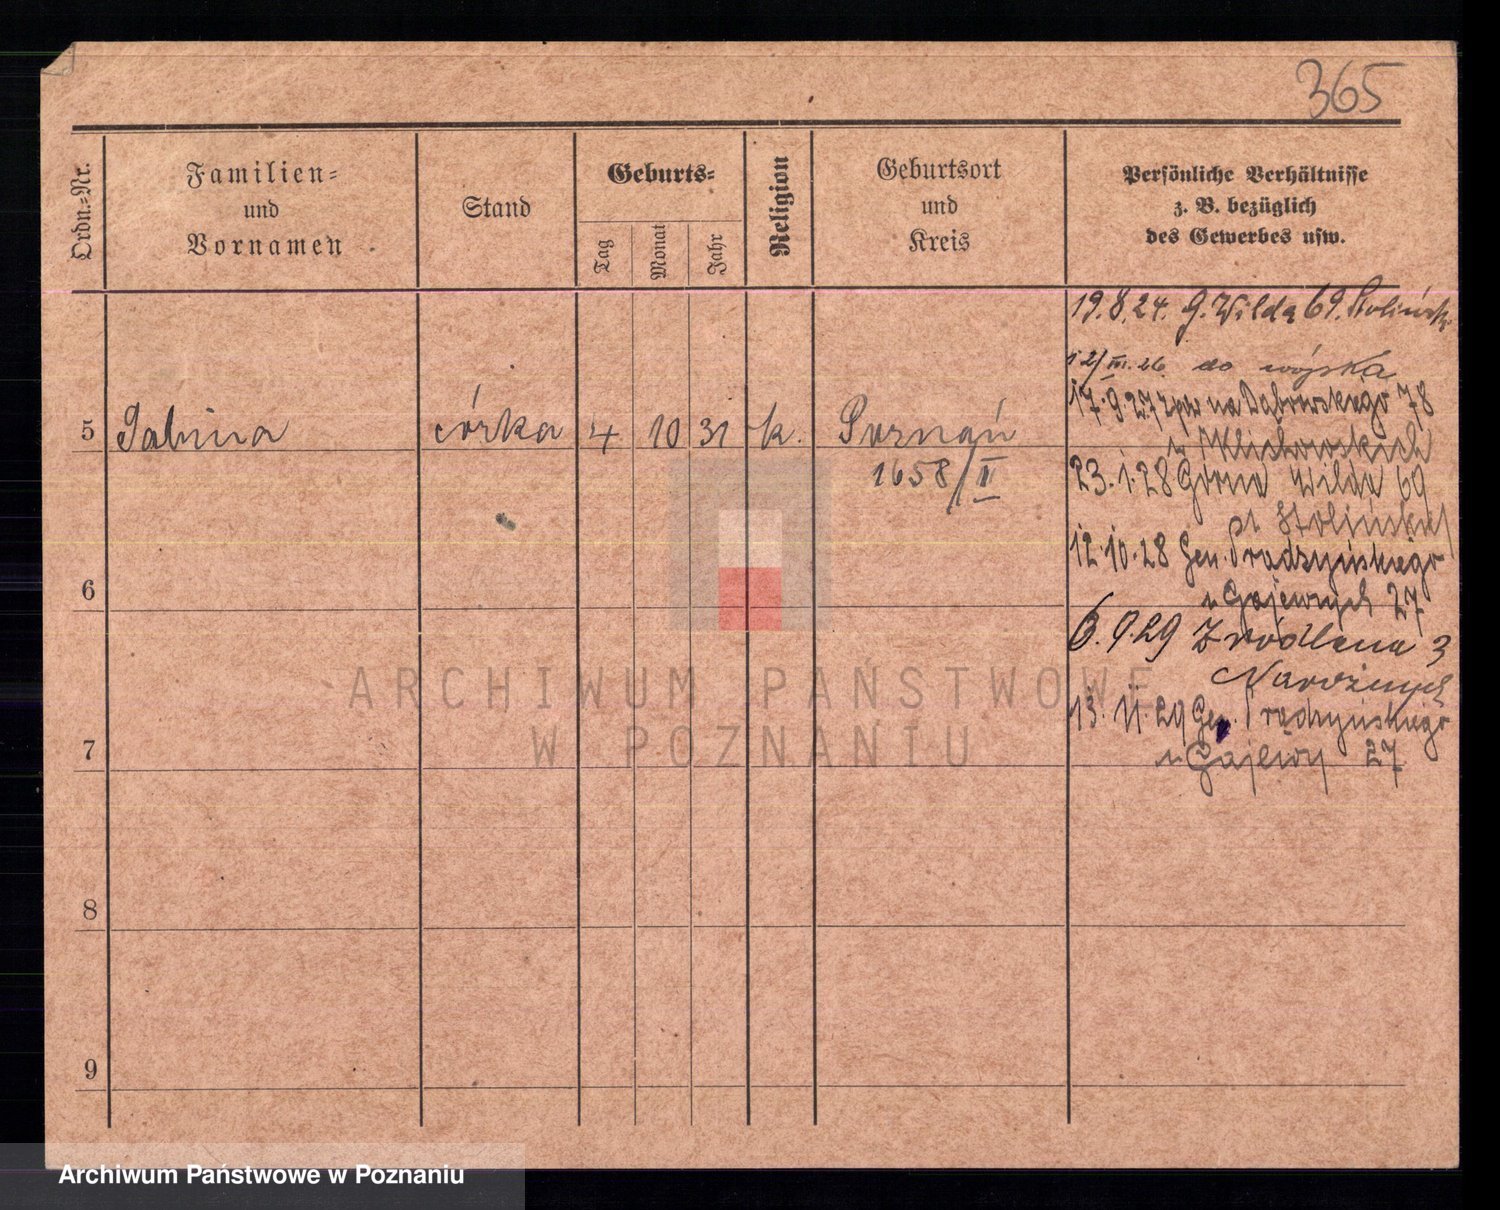 365
Ordn.-Nr.
Familien-
und
Vornamen
Stand
Geburts-
Tag
Monat
Jahr
Religion
Geburtsort
und
Kreis
Persönliche Verhältnisse
z. B. bezüglich
des Gewerbes usw.
19.8.24. G. Wilda 69.
12/III.26 do wójska
17.9.27 na Dąbrowskiego 78
5 Sabina córka 4 10 31 k. Poznań
u Klichowskich
1658/II
23.1.28 Górna Wilda 69
12.10.28 Gen. Prądzyńskiego
6
u Gajewych 27
6.9.29 Źródlana 3
13.11.29 Gen. Prądzyńskiego
7
u Gajewy 27
8
9
ARCHIWUM PAŃSTWOWE
W POZNANIU
Archiwum Państwowe w Poznaniu